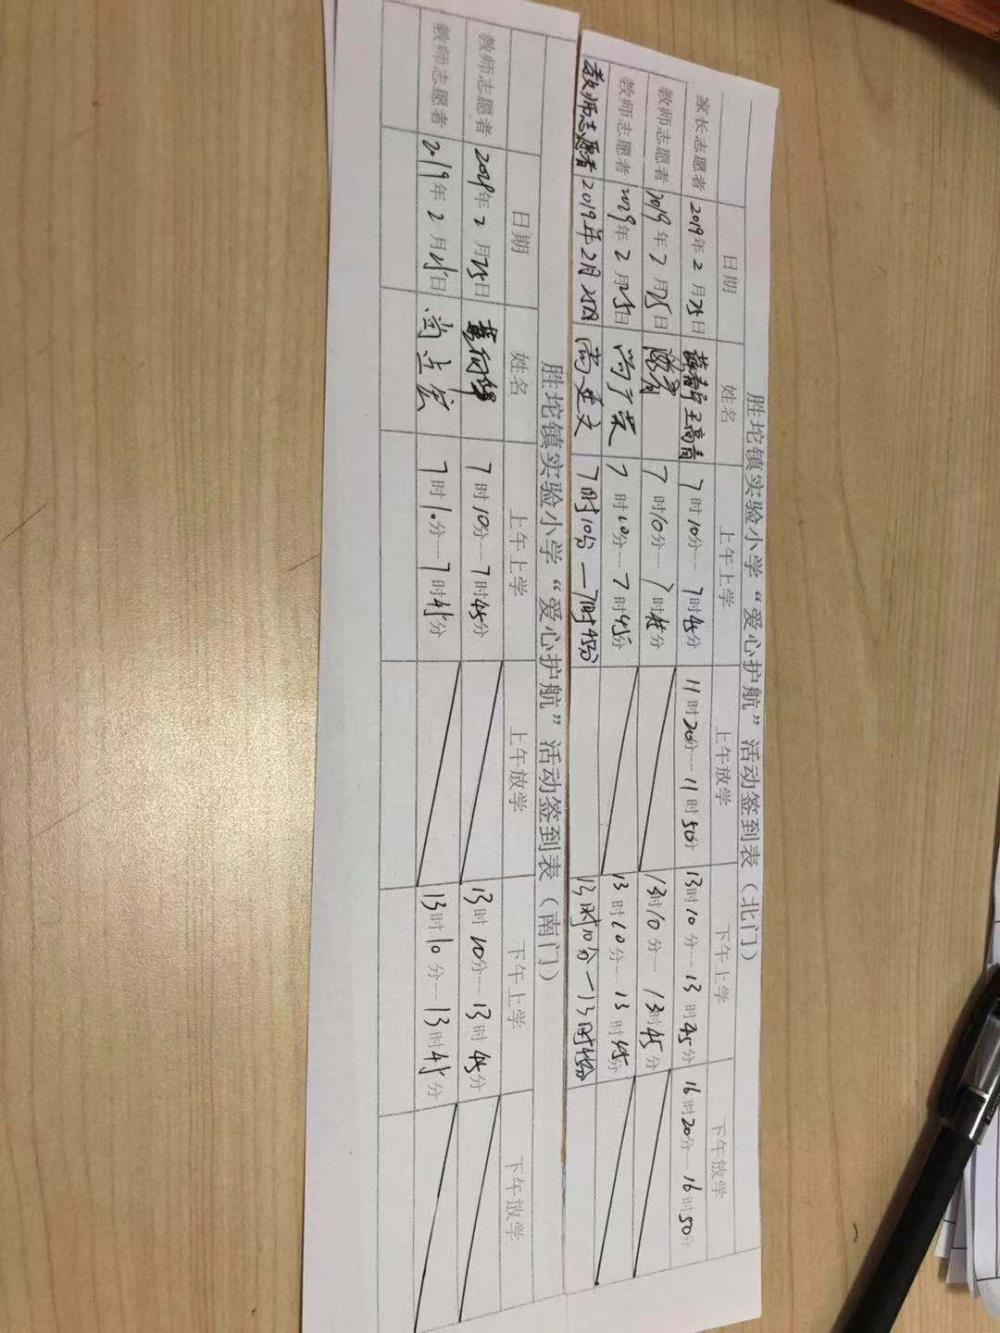 胜坨镇实验小学“爱心护航”活动签到表（北门）
日期 姓名 上午上学 上午放学 下午上学 下午放学
家长志愿者 2019年2月25日 王高青 7时10分---7时45分 11时20分---11时50分 13时10分---13时45分 16时20分---16时50分
教师志愿者 2019年2月25日 7时10分---7时45分 13时10分---13时45分
教师志愿者 2019年2月25日 尚广荣 7时10分---7时45分 13时10分---13时45分
教师志愿者 2019年2月25日 高建文 7时10分—7时45分 13时10分—13时45分
胜坨镇实验小学“爱心护航”活动签到表（南门）
日期 姓名 上午上学 上午放学 下午上学 下午放学
教师志愿者 2019年2月25日 7时10分---7时45分 13时10分---13时45分
教师志愿者 2019年2月25日 尚 7时10分---7时45分 13时10分---13时45分